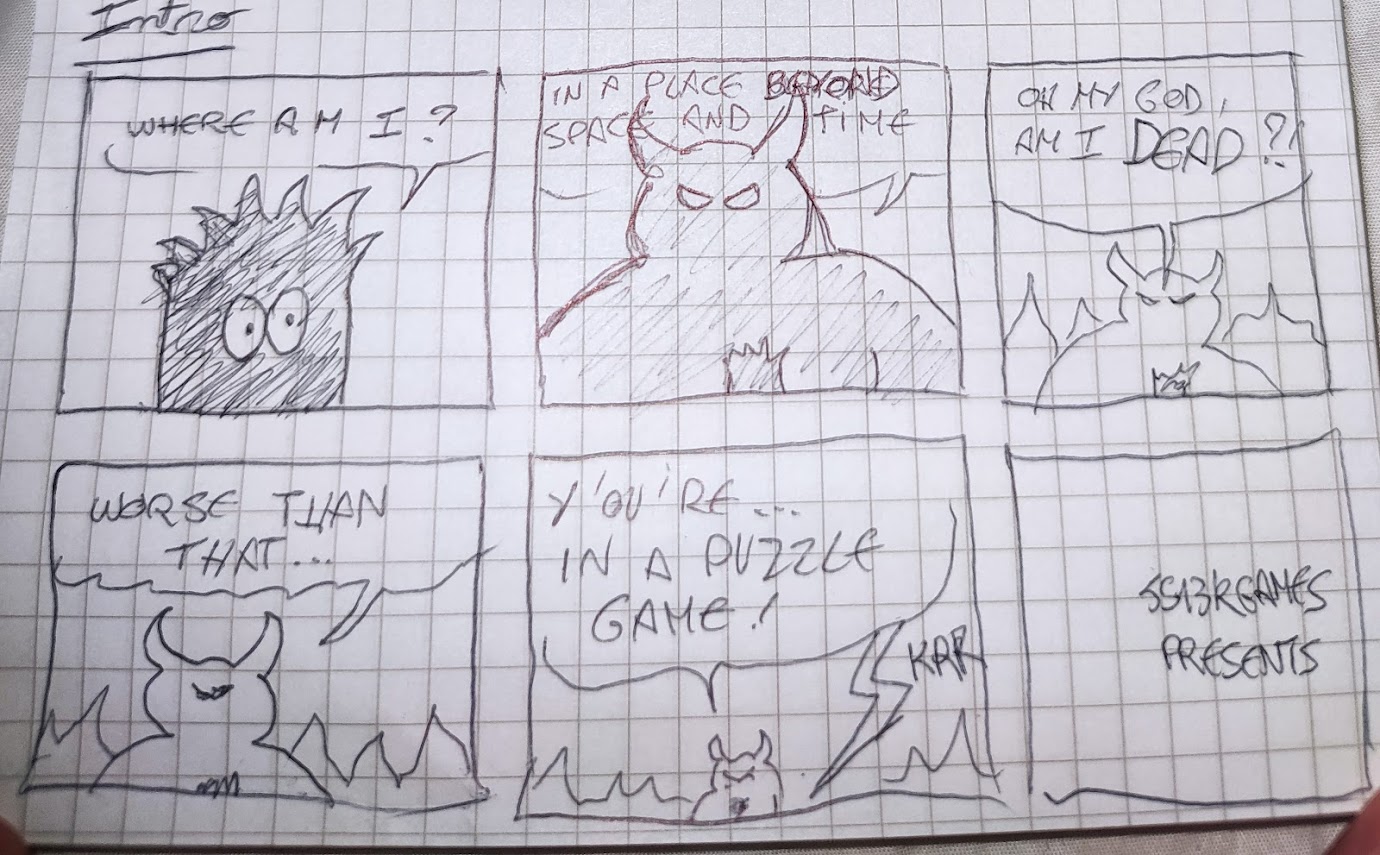 Intro
WHERE AM I?
IN A PLACE BEYOND
SPACE AND TIME
OH MY GOD,
AM I DEAD?!
WORSE THAN
THAT...
YOU'RE...
IN A PUZZLE
GAME!
KAR
PRESENTS